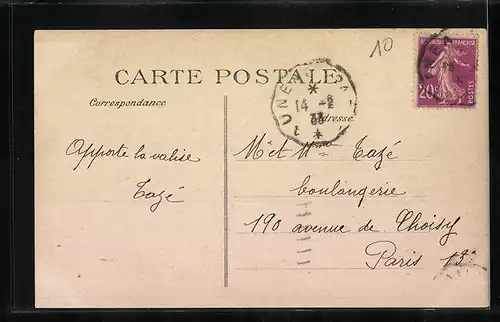 10
REPUBLIQUE FRANÇAISE
20c
POSTES
CARTE POSTALE
14 -2
33
Correspondance
Adresse
Apporte la valise
Tazé
Mr et Mme Tazé
boulangerie
190 avenue de Choisy
Paris 13e